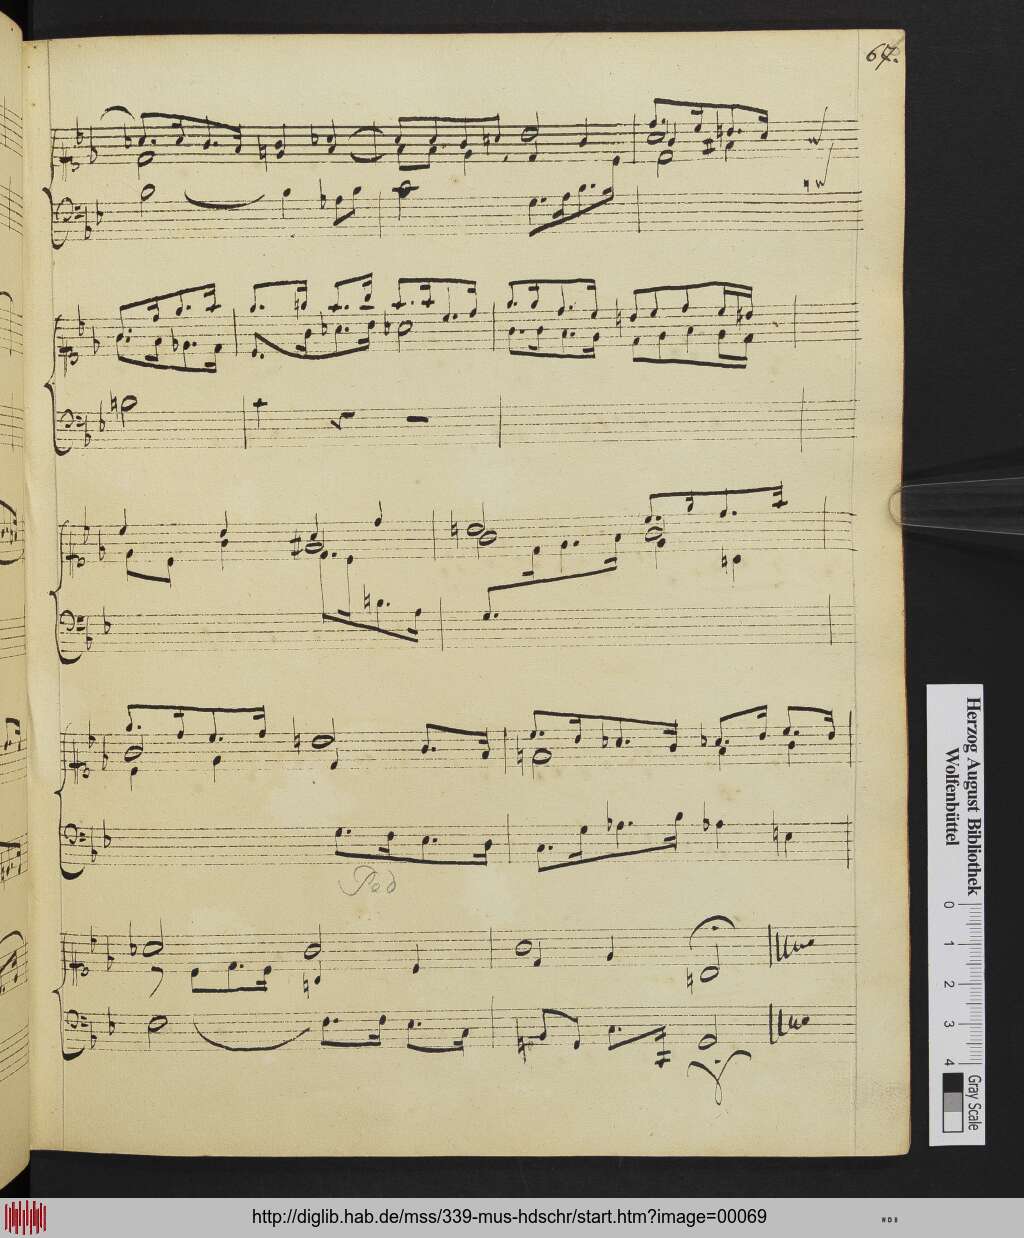 67.
Ped
Herzog August Bibliothek
Wolfenbüttel
0 1 2 3 4
Gray Scale
http://diglib.hab.de/mss/339-mus-hdschr/start.htm?image=00069